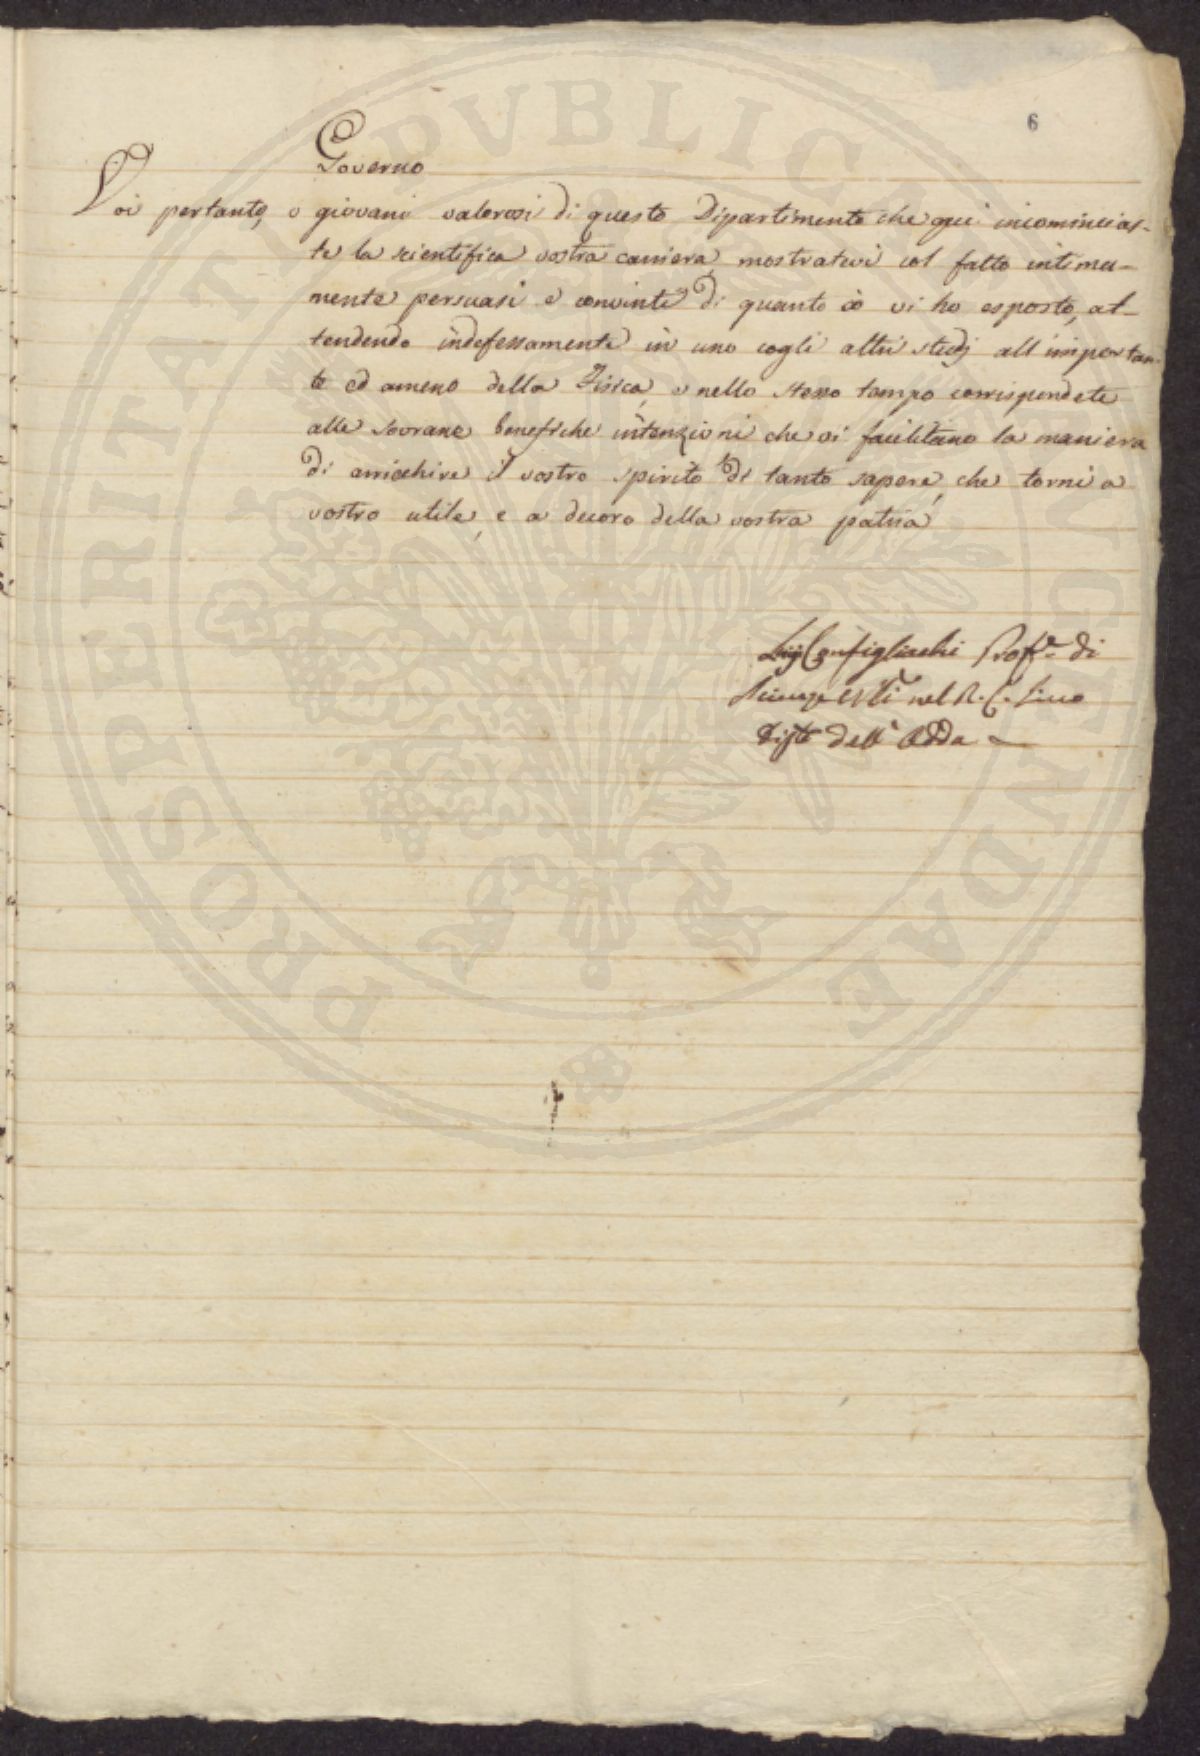 6
Governo
Voi pertanto, o giovani valorosi di questo Dipartimento che qui incomincias-
te la scientifica vostra carriera, mostratevi col fatto intima-
mente persuasi e convinti di quanto io vi ho esposto, at-
tendendo indefessamente in uno cogli altri studj all'importan-
te ed ameno della Fisica, e nello stesso tempo corrispondete
alle sovrane benefiche intenzioni che vi facilitano la maniera
di arricchire il vostro spirito di tanto sapere, che torni a
vostro utile, e a decoro della vostra patria
Luigi Configliachi Prof.e di
Scienze Nli nel R. C. Liceo
Dipto dell'Adda
PROSPERITATI PVBLICAE AVGENDAE